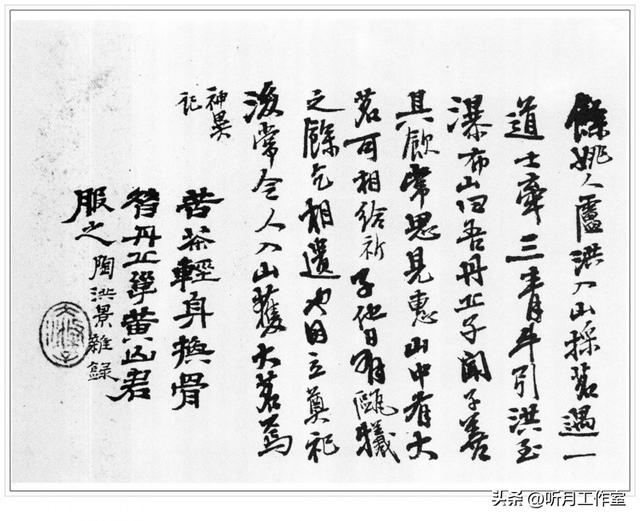 餘姚人盧洪入山採茗遇一
道士牽三青牛引洪至
瀑布山曰吾丹丘子聞子善
其飲常思見惠山中有大
茗可相給祈子他日有甌犧
之餘乞相遺也因立奠祀
後常令人入山獲大茗焉
神異
記
苦茶輕身換骨
昔丹丘黃山君
服之 陶洪景雜錄
头条 @听月工作室